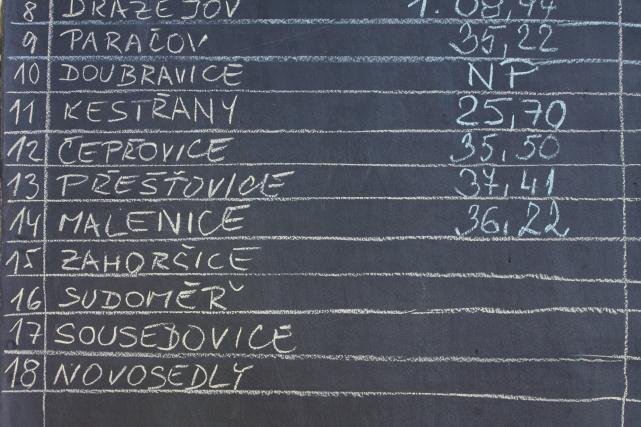 8 DRAŽEJOV 1.08,44
9 PARAČOV 35,22
10 DOUBRAVICE NP
11 KESTŘANY 25,70
12 ČEPŘOVICE 35,50
13 PŘEŠŤOVICE 37,41
14 MALENICE 36,22
15 ZAHORČICE
16 SUDOMĚŘ
17 SOUSEDOVICE
18 NOVOSEDLY